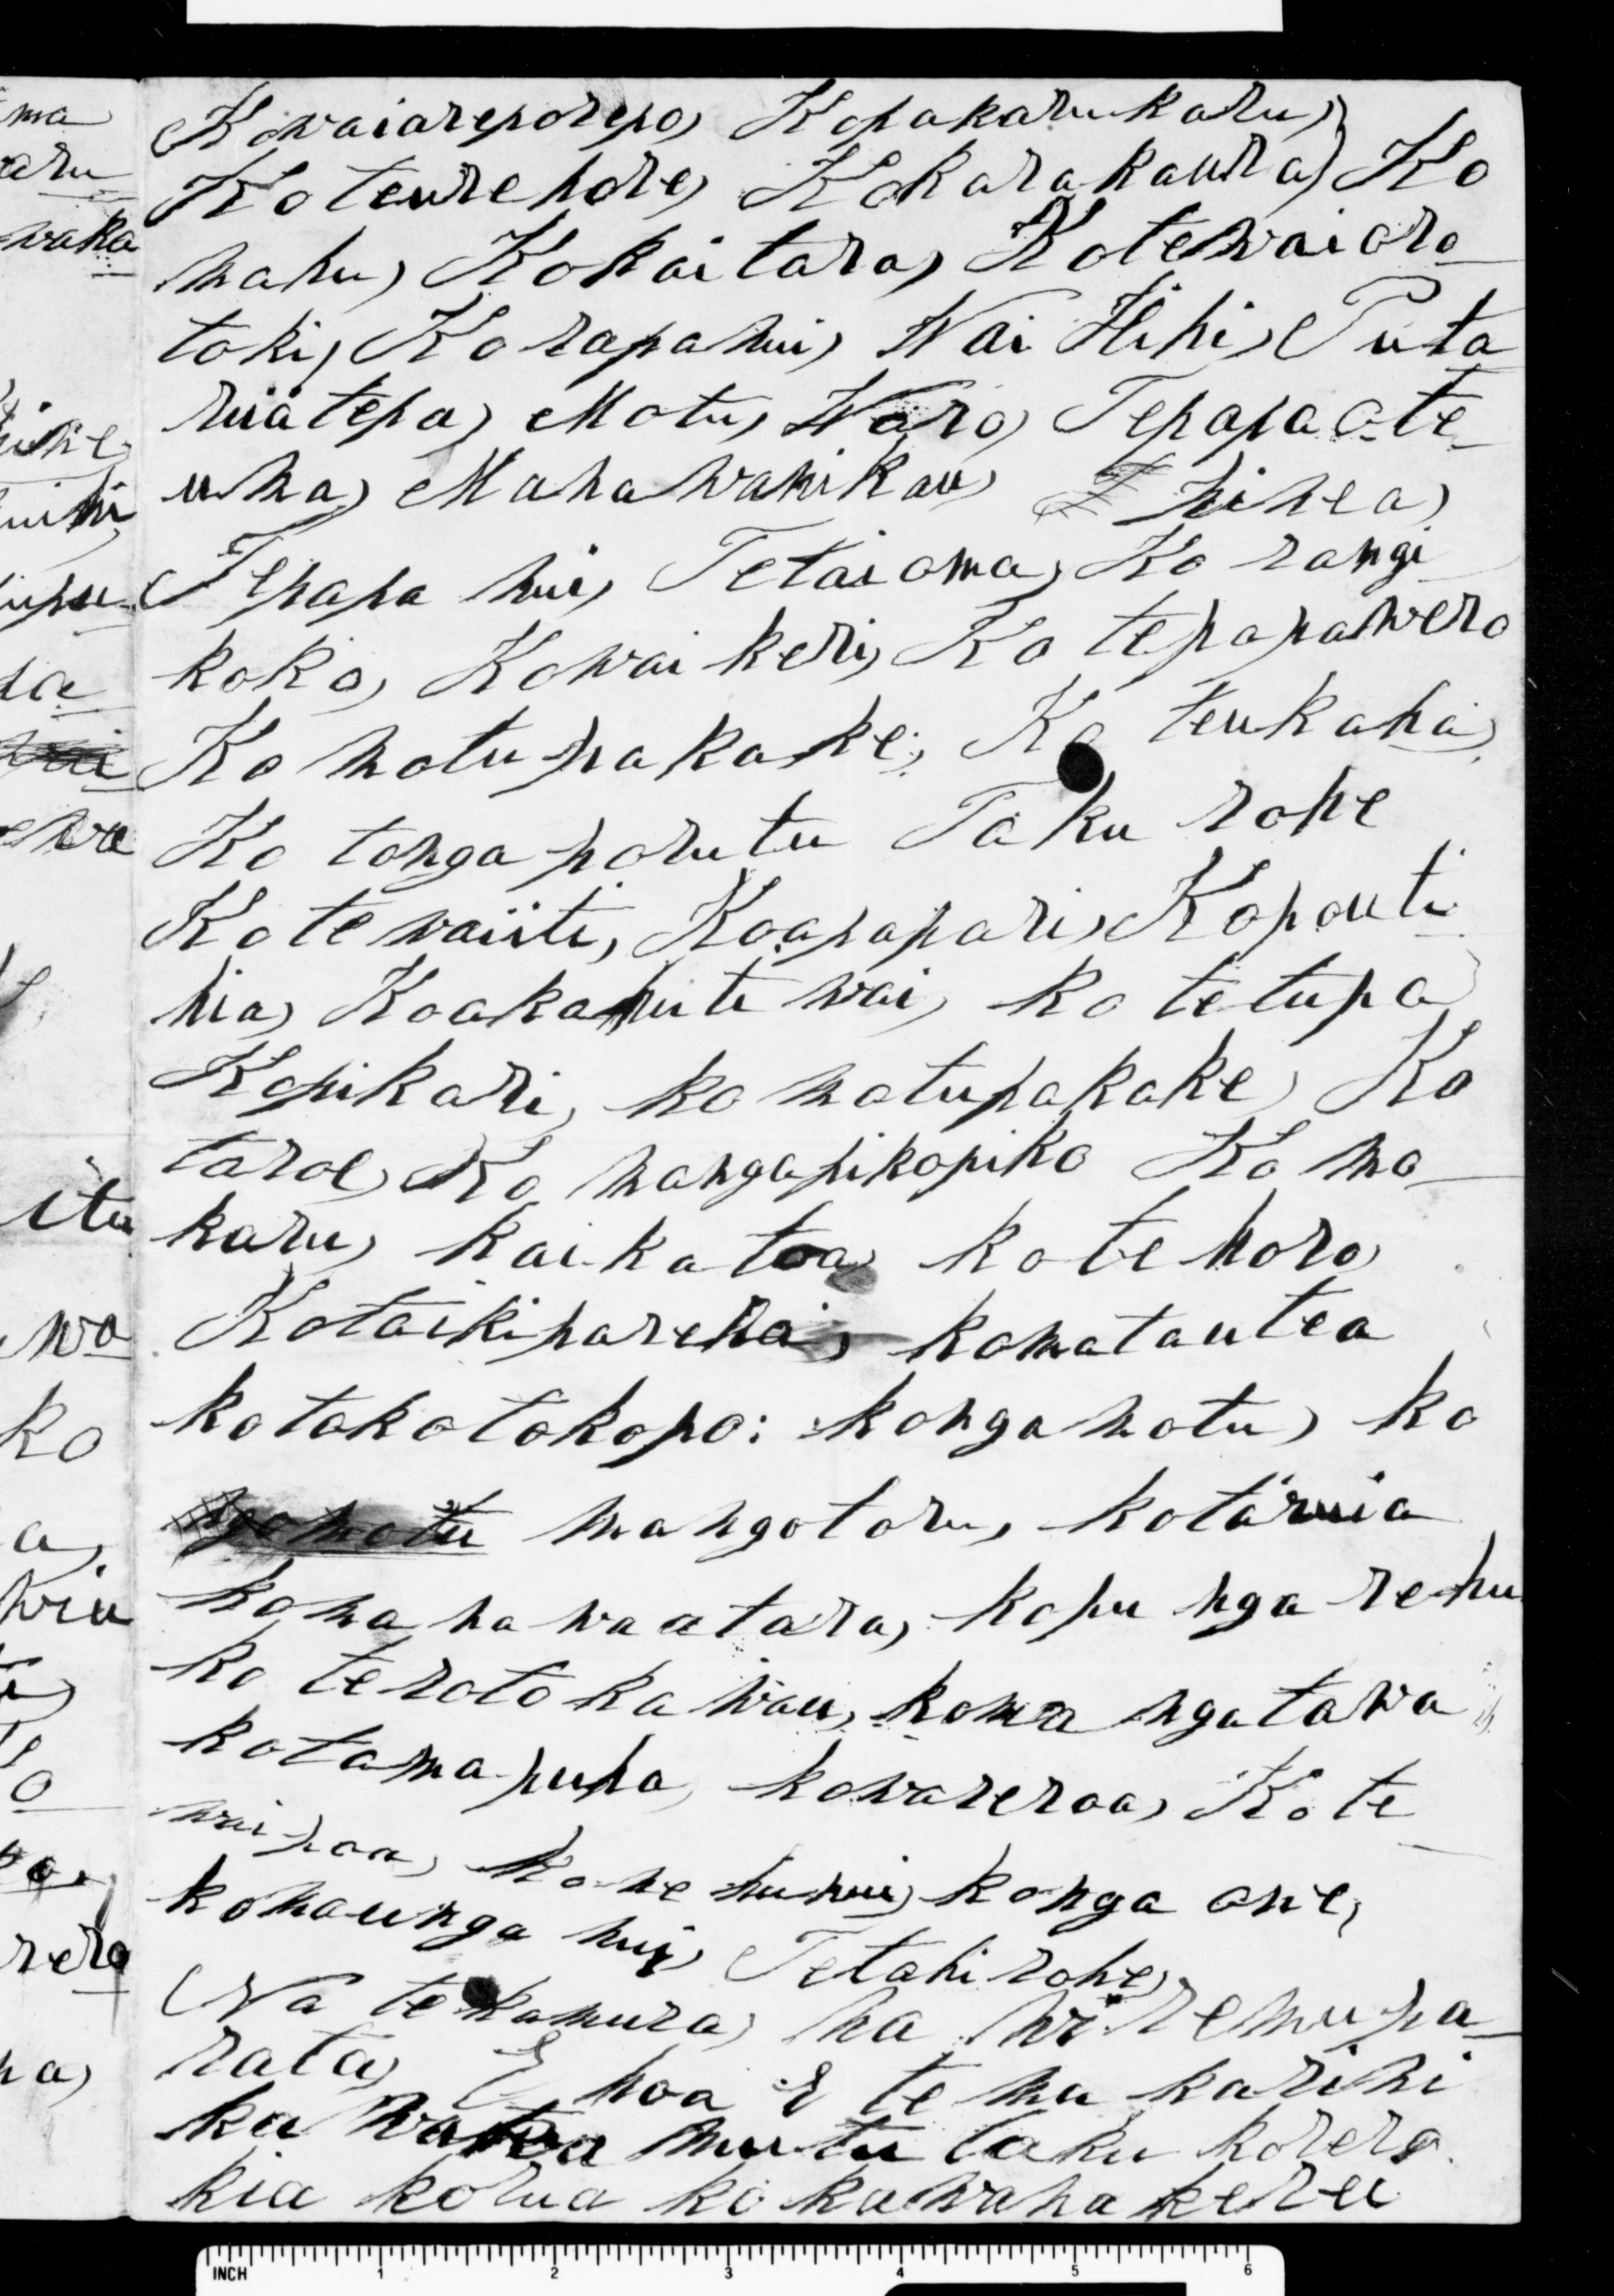 Kowaiareporepo, Kopakarukaru,
Koteurehore, Kokarakaura, Ko
nahu, Kokaitara, Kotewaioro
toki, Korapanui, Wai Hihi, Puta
ruatepa, Motu, Waro, Tepapaote
una, Mahawanikau, hinea,
Tepapa nui, Tetaioma, Ko rangi
koko, Kowaikeri, Ko tepapawero
Ko motupakake, Ko teukaha,
Ko tongaporutu Taku rohe
Kotewaiiti, Koapapari, Kopouti
nia, Koakahuti wai, ko tetupa
Kopikari, ko motupakake, Ko
taroe, Ko mangapikopiko Ko mo
karu, kaikatoa, ko te horo,
Kotaikiparehai, komatautea
kotokotokopo: konga motu, ko
mangotoru, kotaruia
komahawaatara, kopu nga rehu
ko terotokawau, koma ngatawa
kotamapuha, kowareroa, Kote
waipaa, konehunui, konga one,
komaunga nui, Tetahi rohe,
Na tekamura, na wiremupa
rata, E hoa E te makarini
ka mutu taku korero
kia korua ko kawana kerei
ma
aru
waka
itu
wo
ko
a,
rero
INCH 1 2 3 4 5 6